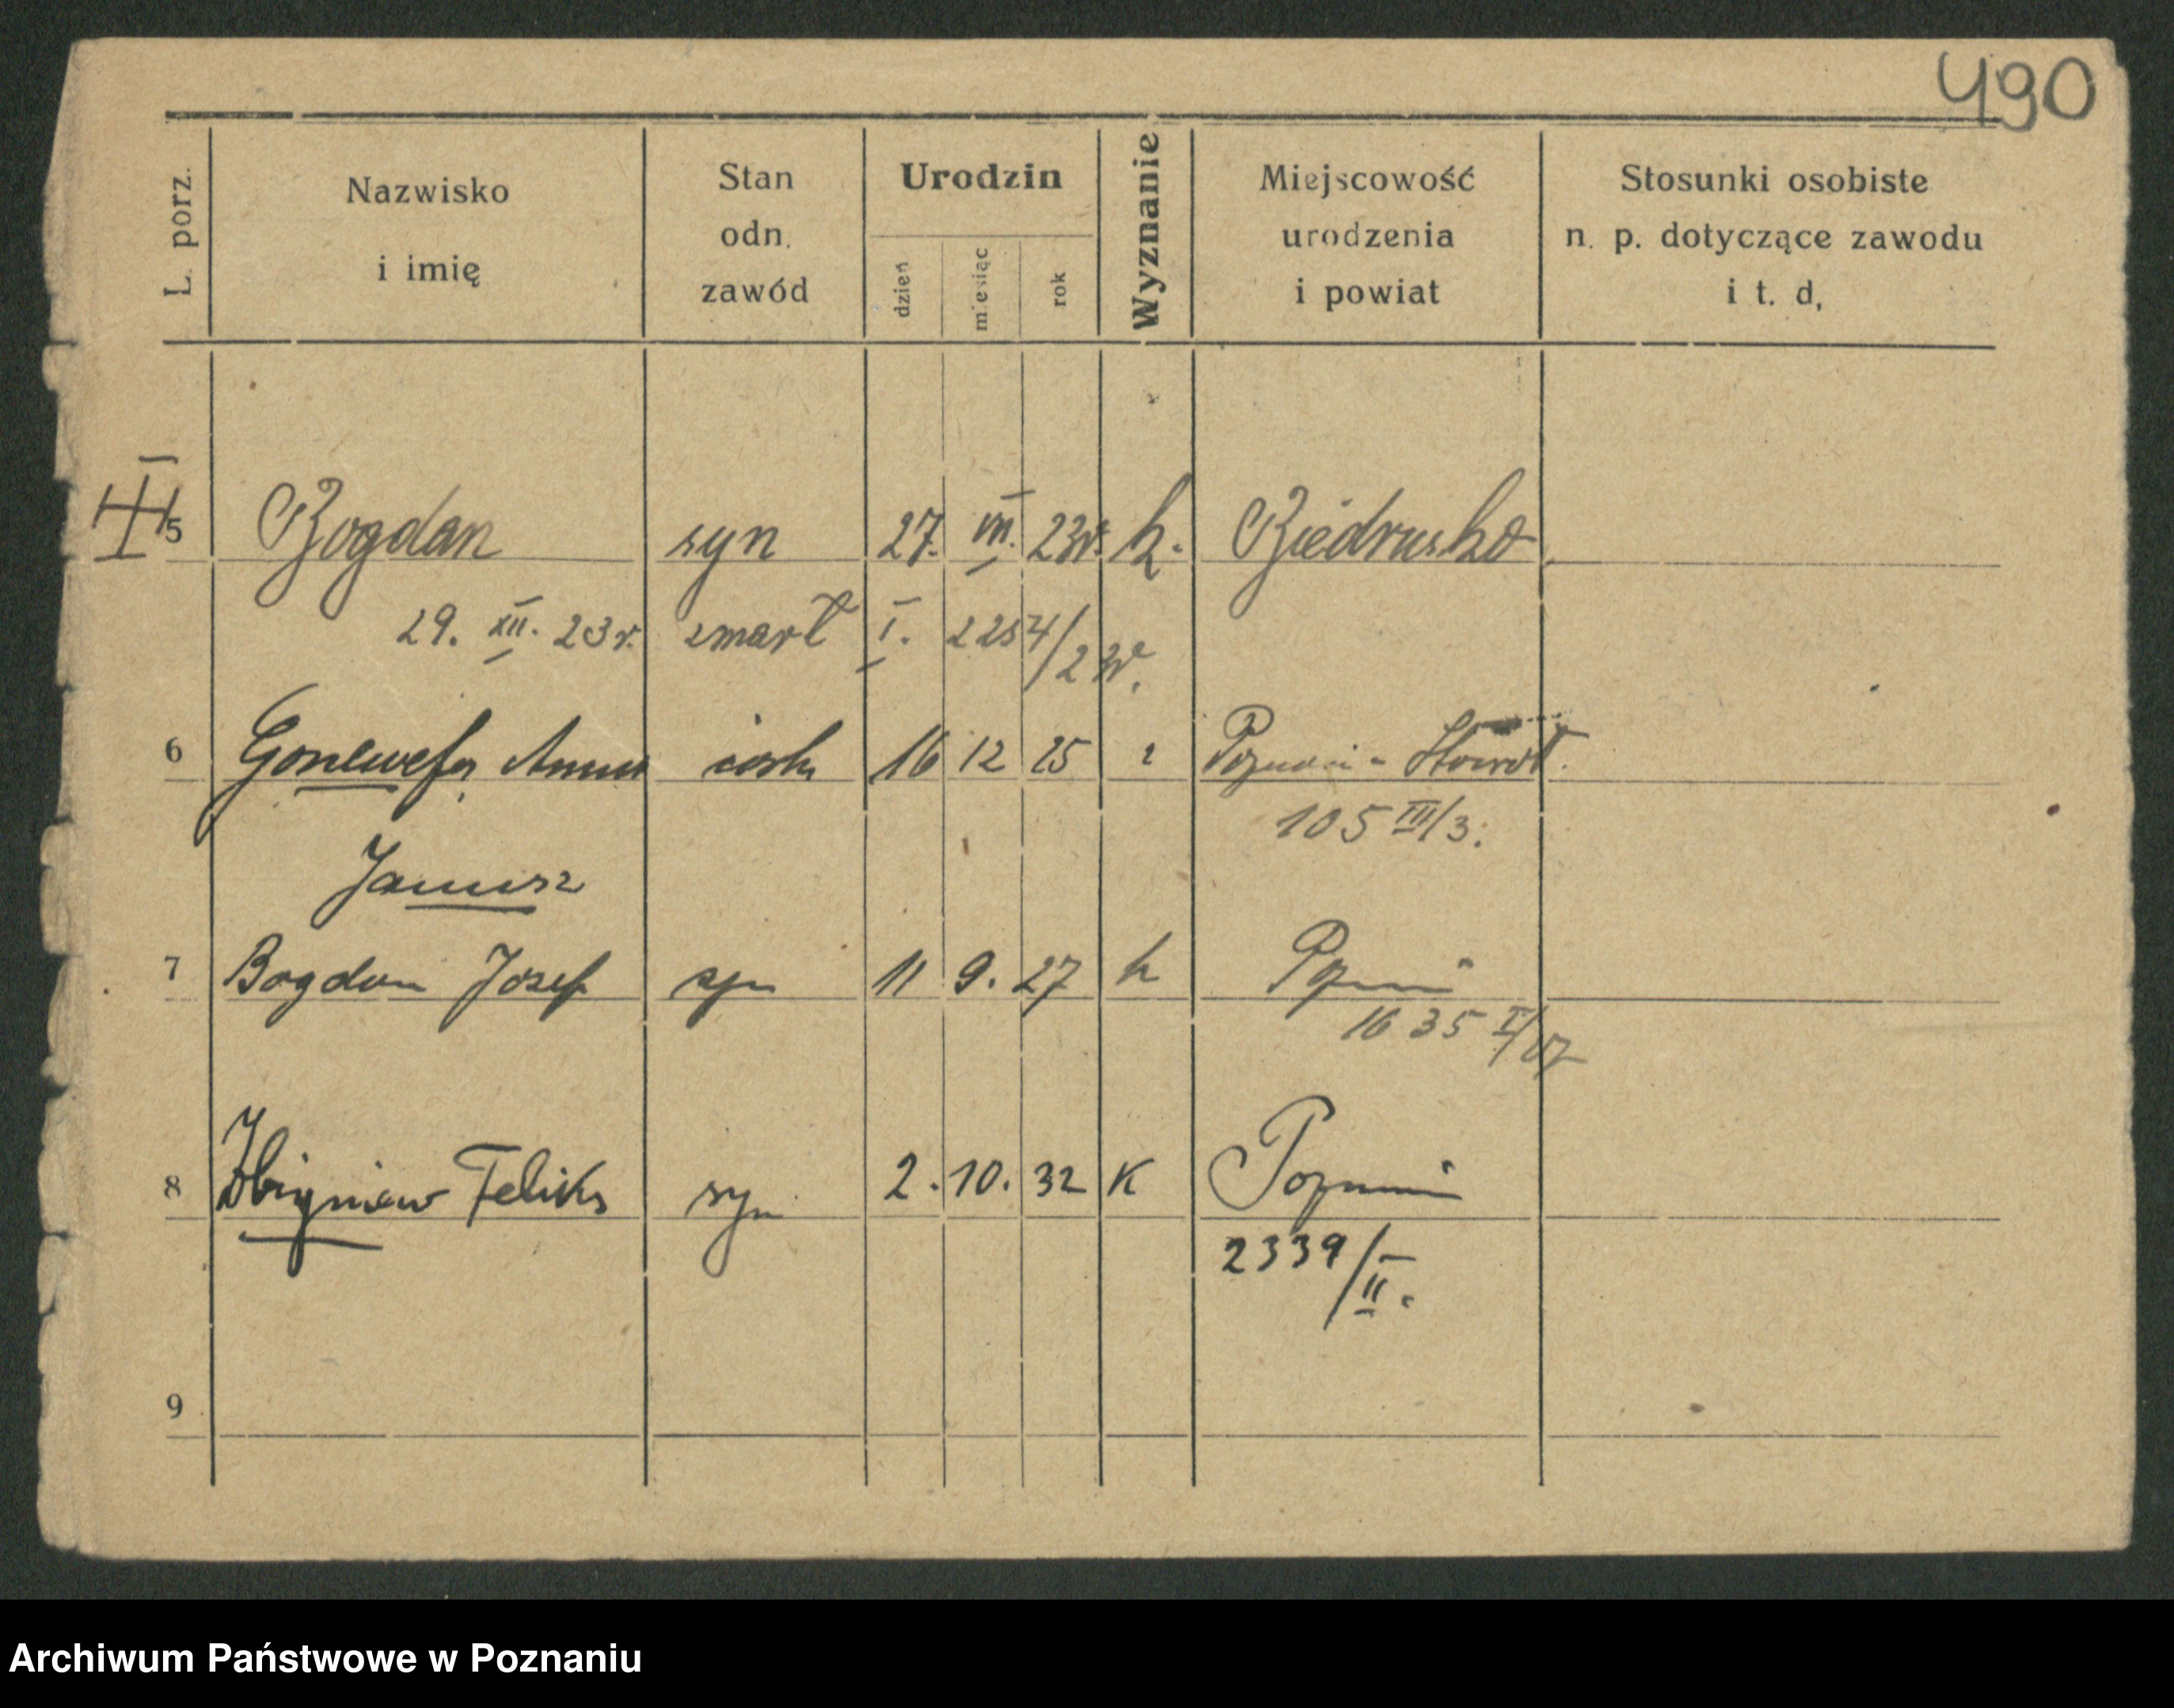 490
L. porz.
Nazwisko
i imię
Stan
odn.
zawód
Urodzin
dzień
miesiąc
rok
Wyznanie
Miejscowość
urodzenia
i powiat
Stosunki osobiste
n. p. dotyczące zawodu
i t. d.
5 Bogdan syn 27. VII. 23r. k. Biedrusko
29. XII. 23r. zmarł I. 2254/23r.
6 Genowefa Anna córka 16 12 25 Poznań -
105 III/3.
Janusz
7 Bogdan Józef syn 11 9. 27 k Poznań
1635 I/27
8 Zbigniew Feliks syn 2. 10. 32 K Poznań
2339/II.
9
Archiwum Państwowe w Poznaniu